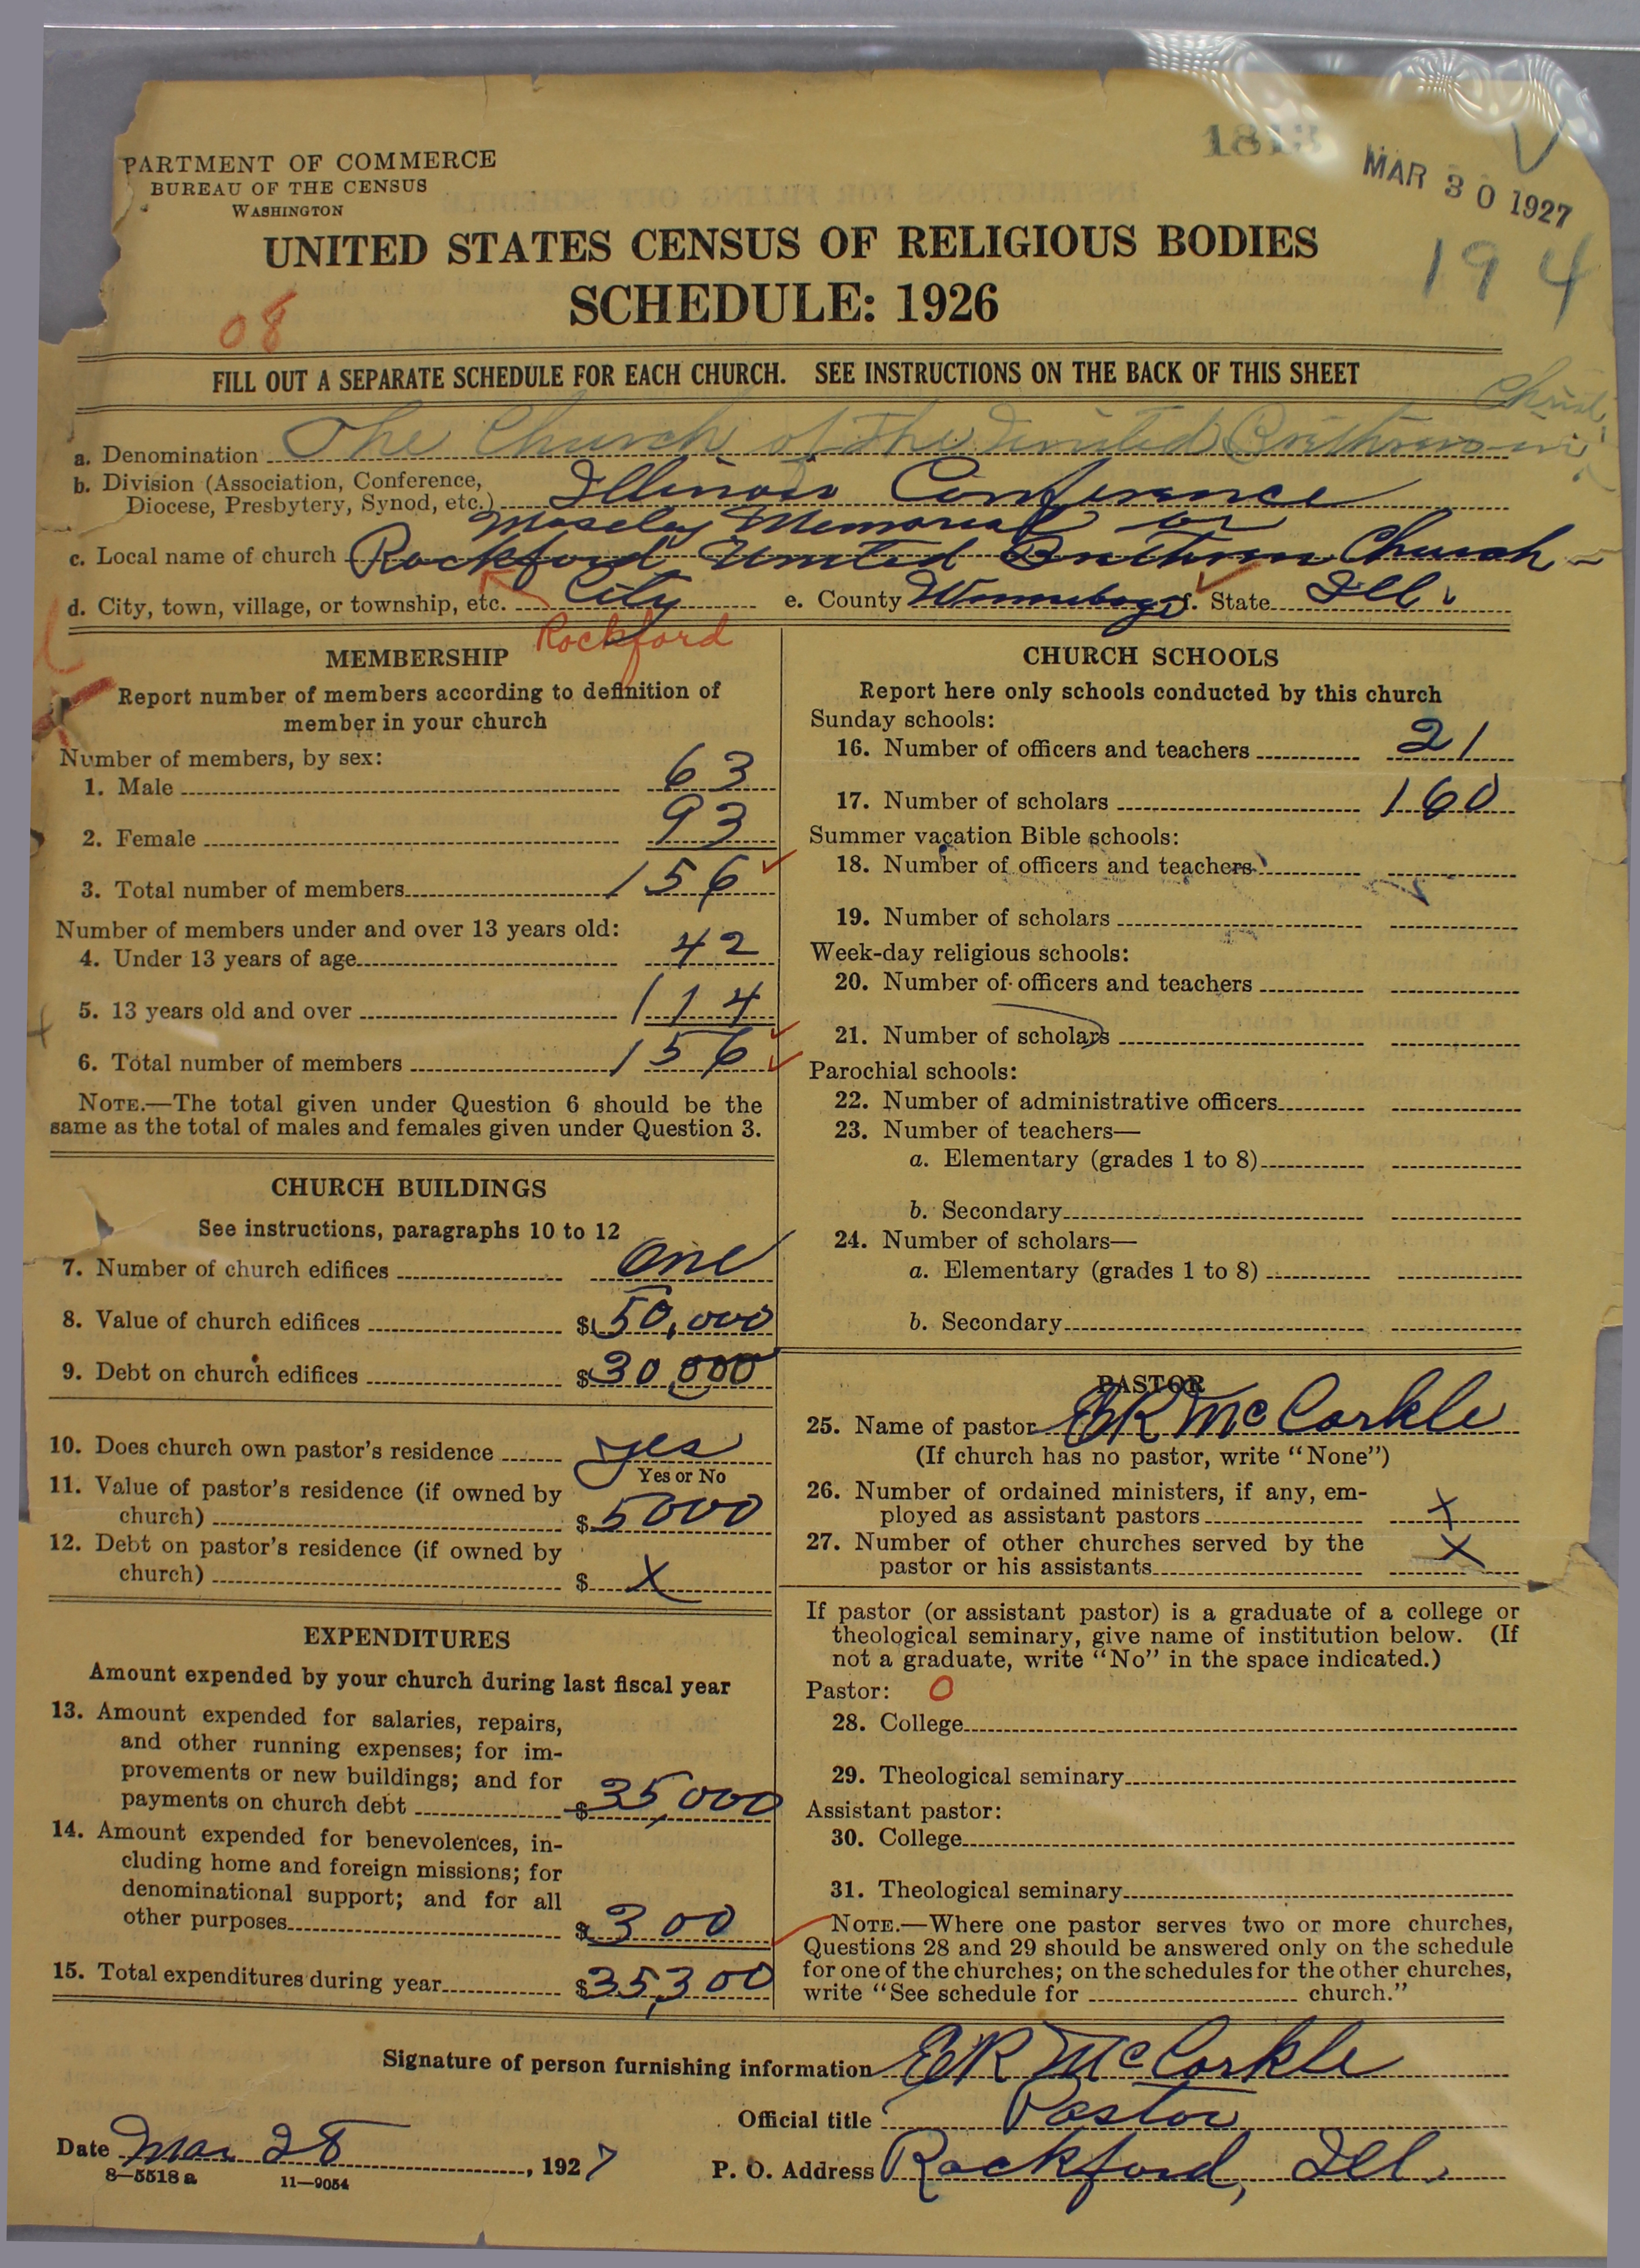 1813
MAR 30 1927
194
PARTMENT OF COMMERCE
BUREAU OF THE CENSUS
WASHINGTON
UNITED STATES CENSUS OF RELIGIOUS BODIES
SCHEDULE: 1926
08
FILL OUT A SEPARATE SCHEDULE FOR EACH CHURCH. SEE INSTRUCTIONS ON THE BACK OF THIS SHEET
a. Denomination The Church of the United Brethren in Christ
b. Division (Association, Conference,
Diocese, Presbytery, Synod, etc.) Illinois Conference
Moseley Memorial or
c. Local name of church Rockford United Brethren Church
d. City, town, village, or township, etc. City e. County Winnebago f. State Ill.
Rockford
MEMBERSHIP
Report number of members according to definition of
member in your church
Number of members, by sex:
1. Male 63
2. Female 93
3. Total number of members 156
Number of members under and over 13 years old:
4. Under 13 years of age 42
5. 13 years old and over 114
6. Total number of members 156
NOTE.—The total given under Question 6 should be the
same as the total of males and females given under Question 3.
CHURCH BUILDINGS
See instructions, paragraphs 10 to 12
7. Number of church edifices One
8. Value of church edifices $ 50,000
9. Debt on church edifices $ 30,000
10. Does church own pastor's residence yes
Yes or No
11. Value of pastor's residence (if owned by
church) $ 5000
12. Debt on pastor's residence (if owned by
church) $ X
EXPENDITURES
Amount expended by your church during last fiscal year
13. Amount expended for salaries, repairs,
and other running expenses; for im-
provements or new buildings; and for
payments on church debt $ 35,000
14. Amount expended for benevolences, in-
cluding home and foreign missions; for
denominational support; and for all
other purposes $ 300
15. Total expenditures during year $ 35,300
CHURCH SCHOOLS
Report here only schools conducted by this church
Sunday schools:
16. Number of officers and teachers 21
17. Number of scholars 160
Summer vacation Bible schools:
18. Number of officers and teachers
19. Number of scholars
Week-day religious schools:
20. Number of officers and teachers
21. Number of scholars
Parochial schools:
22. Number of administrative officers
23. Number of teachers—
a. Elementary (grades 1 to 8)
b. Secondary
24. Number of scholars—
a. Elementary (grades 1 to 8)
b. Secondary
PASTOR
25. Name of pastor ER McCorkle
(If church has no pastor, write "None")
26. Number of ordained ministers, if any, em-
ployed as assistant pastors X
27. Number of other churches served by the
pastor or his assistants X
If pastor (or assistant pastor) is a graduate of a college or
theological seminary, give name of institution below. (If
not a graduate, write "No" in the space indicated.)
Pastor: 0
28. College
29. Theological seminary
Assistant pastor:
30. College
31. Theological seminary
NOTE.—Where one pastor serves two or more churches,
Questions 28 and 29 should be answered only on the schedule
for one of the churches; on the schedules for the other churches,
write "See schedule for church."
Signature of person furnishing information ER McCorkle
Official title Pastor
Date Mar 28, 1927
P. O. Address Rockford, Ill.
8—5518a 11—9054